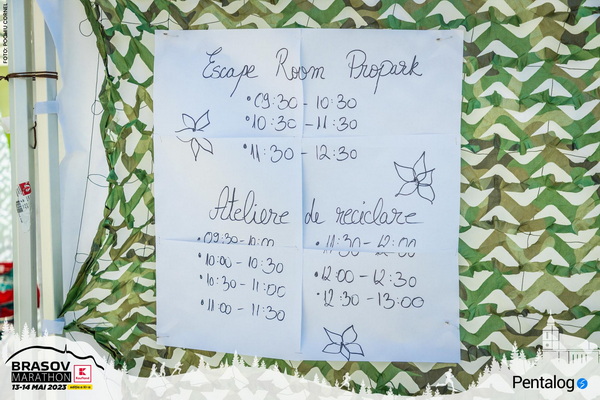 FOTO: POGMU CORNEL
Escape Room Propark
• 09:30 - 10:30
• 10:30 - 11:30
• 11:30 - 12:30
Ateliere de reciclare
• 09:30 - 10:00
• 10:00 - 10:30
• 10:30 - 11:00
• 11:00 - 11:30
• 11:30 - 12:00
• 12:00 - 12:30
• 12:30 - 13:00
BRASOV
MARATHON
13-14 MAI 2023
Pentalog